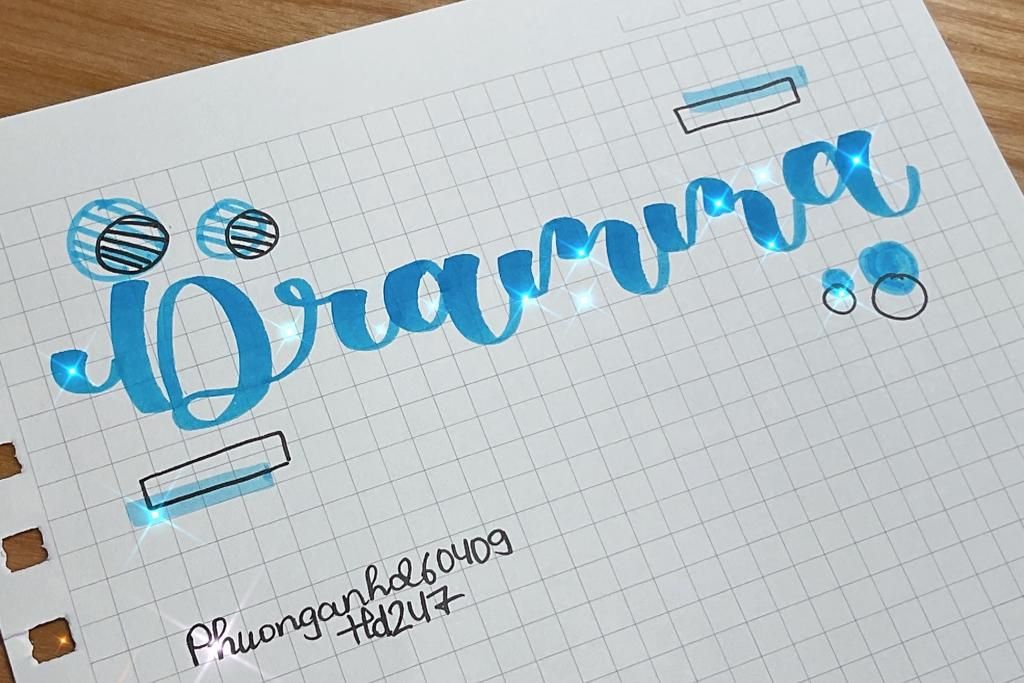 Dranna
Phuonganhd260409
Hd247